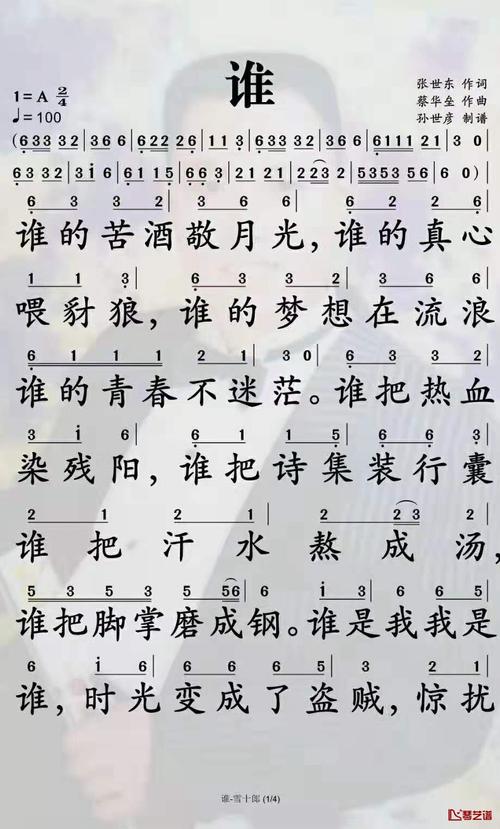 谁
张世东 作词
蔡华垒 作曲
孙世彦 制谱
1=A 2/4
♩=100
(6333 32 | 363 36 | 6222 26 | 113 63 | 6333 32 | 3636 | 6111 21 | 3 0
6332 32 | 33i6 | 6115 | 663 2123 | 2223 21 | 535356 | 6 0)
6 3 3 2 | 3 6 6 | 6 2 2 2 | 2 6
谁的苦酒敬月光，谁的真心
1 1 3 | 6 3 3 2 | 3 6 3 6
喂豺狼，谁的梦想在流浪
6 1 1 1 | 2 1 | 3 0 | 6 3 3 2
谁的青春不迷茫。谁把热血
3 i 6 | 6 1 1 5 | 6 6 3
染残阳，谁把诗集装行囊
2 1 2 1 | 2 2 3
谁把汗水熬成汤，
5 3 5 3 | 5 56 | 6 | 6 6 3 6
谁把脚掌磨成钢。谁是我我是
6 | i 6 6 5 | 6 6 3 | 2 1
谁，时光变成了盗贼，惊扰
谁-雪十郎 (1/4)
琴艺谱